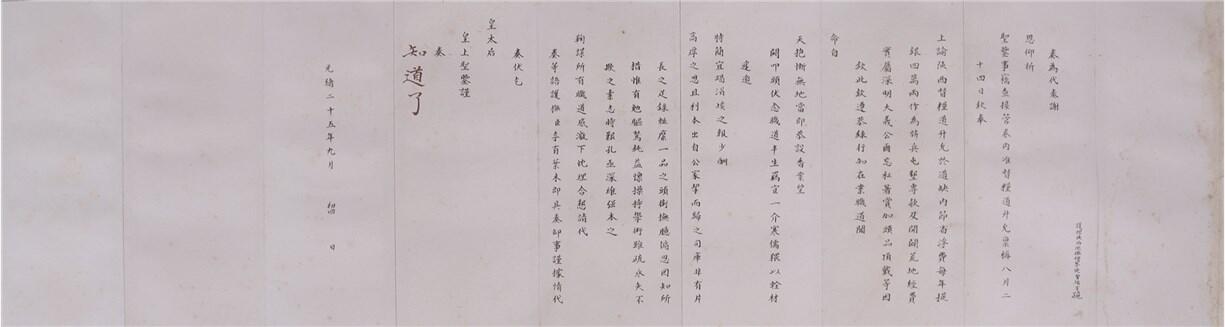 奏為代奏謝
恩仰祈
聖鑒事竊查接管卷內准督糧道升允稟稱八月二
十四日欽奉
上諭陝西督糧道升允於道缺內節省浮費每年提
銀四萬兩作為練兵屯墾專款及開闢荒地經費
實屬深明大義公爾忘私著賞加頭品頂戴等因
欽此欽遵恭錄行知在案職道聞
命自
天抱慚無地當即恭設香案望
闕叩頭伏念職道半生羈宦一介寒儒猥以輇材
遽邀
特簡宜竭涓埃之報少酬
高厚之恩且利本出自公家挈而歸之司庫非有片
長之足錄祗縻一品之頭銜撫膺滋愧因知所
措惟有勉驅駑鈍益懍操持學術雖疏永矢不
欺之素志時艱孔亟深維保本之
訏謨所有職道感激下忱理合懇請代
奏等語護撫臣李有棻未即具奏卸事謹據情代
奏伏乞
皇太后
皇上聖鑒謹
奏
知道了
光緒二十五年九月 初 日